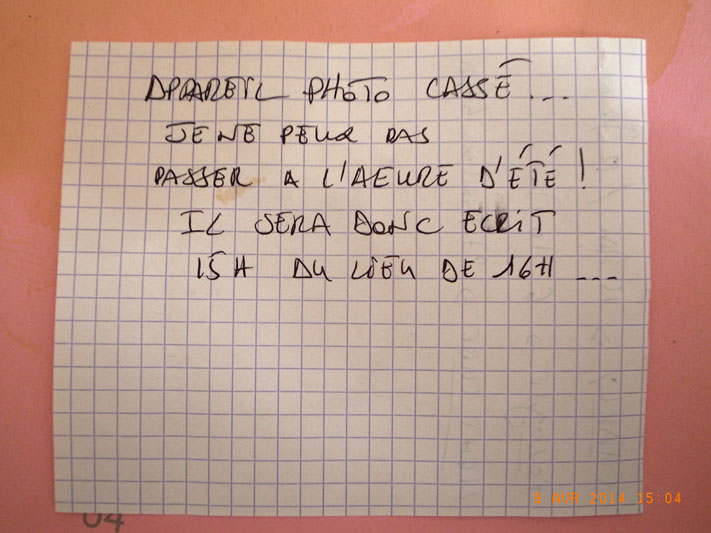 APPAREIL PHOTO CASSÉ...
JE NE PEUX PAS
PASSER A L'HEURE D'ÉTÉ !
IL SERA DONC ECRIT
15H AU LIEU DE 16H ...
8 AVR 2014 15:04
04